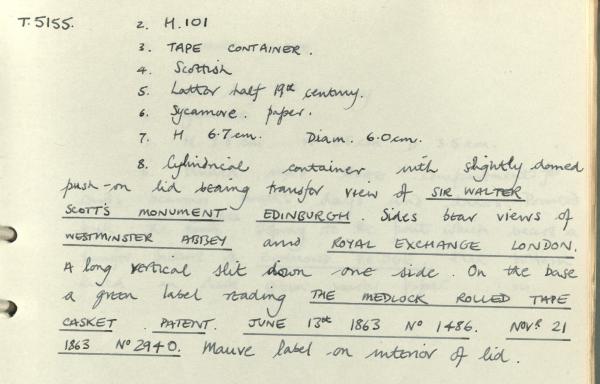 T.5155. 2. H.101
3. TAPE CONTAINER.
4. Scottish
5. Latter half 19th century.
6. Sycamore. paper.
7. H 6.7cm. Diam. 6.0cm.
8. Cylindrical container with slightly domed
push-on lid bearing transfer view of SIR WALTER
SCOTT'S MONUMENT EDINBURGH. Sides bear views of
WESTMINSTER ABBEY and ROYAL EXCHANGE LONDON.
A long vertical slit down one side. On the base
a green label reading THE MEDLOCK ROLLED TAPE
CASKET. PATENT. JUNE 13th 1863 No 1486. NOVR 21
1863 No 2940. Mauve label on interior of lid.